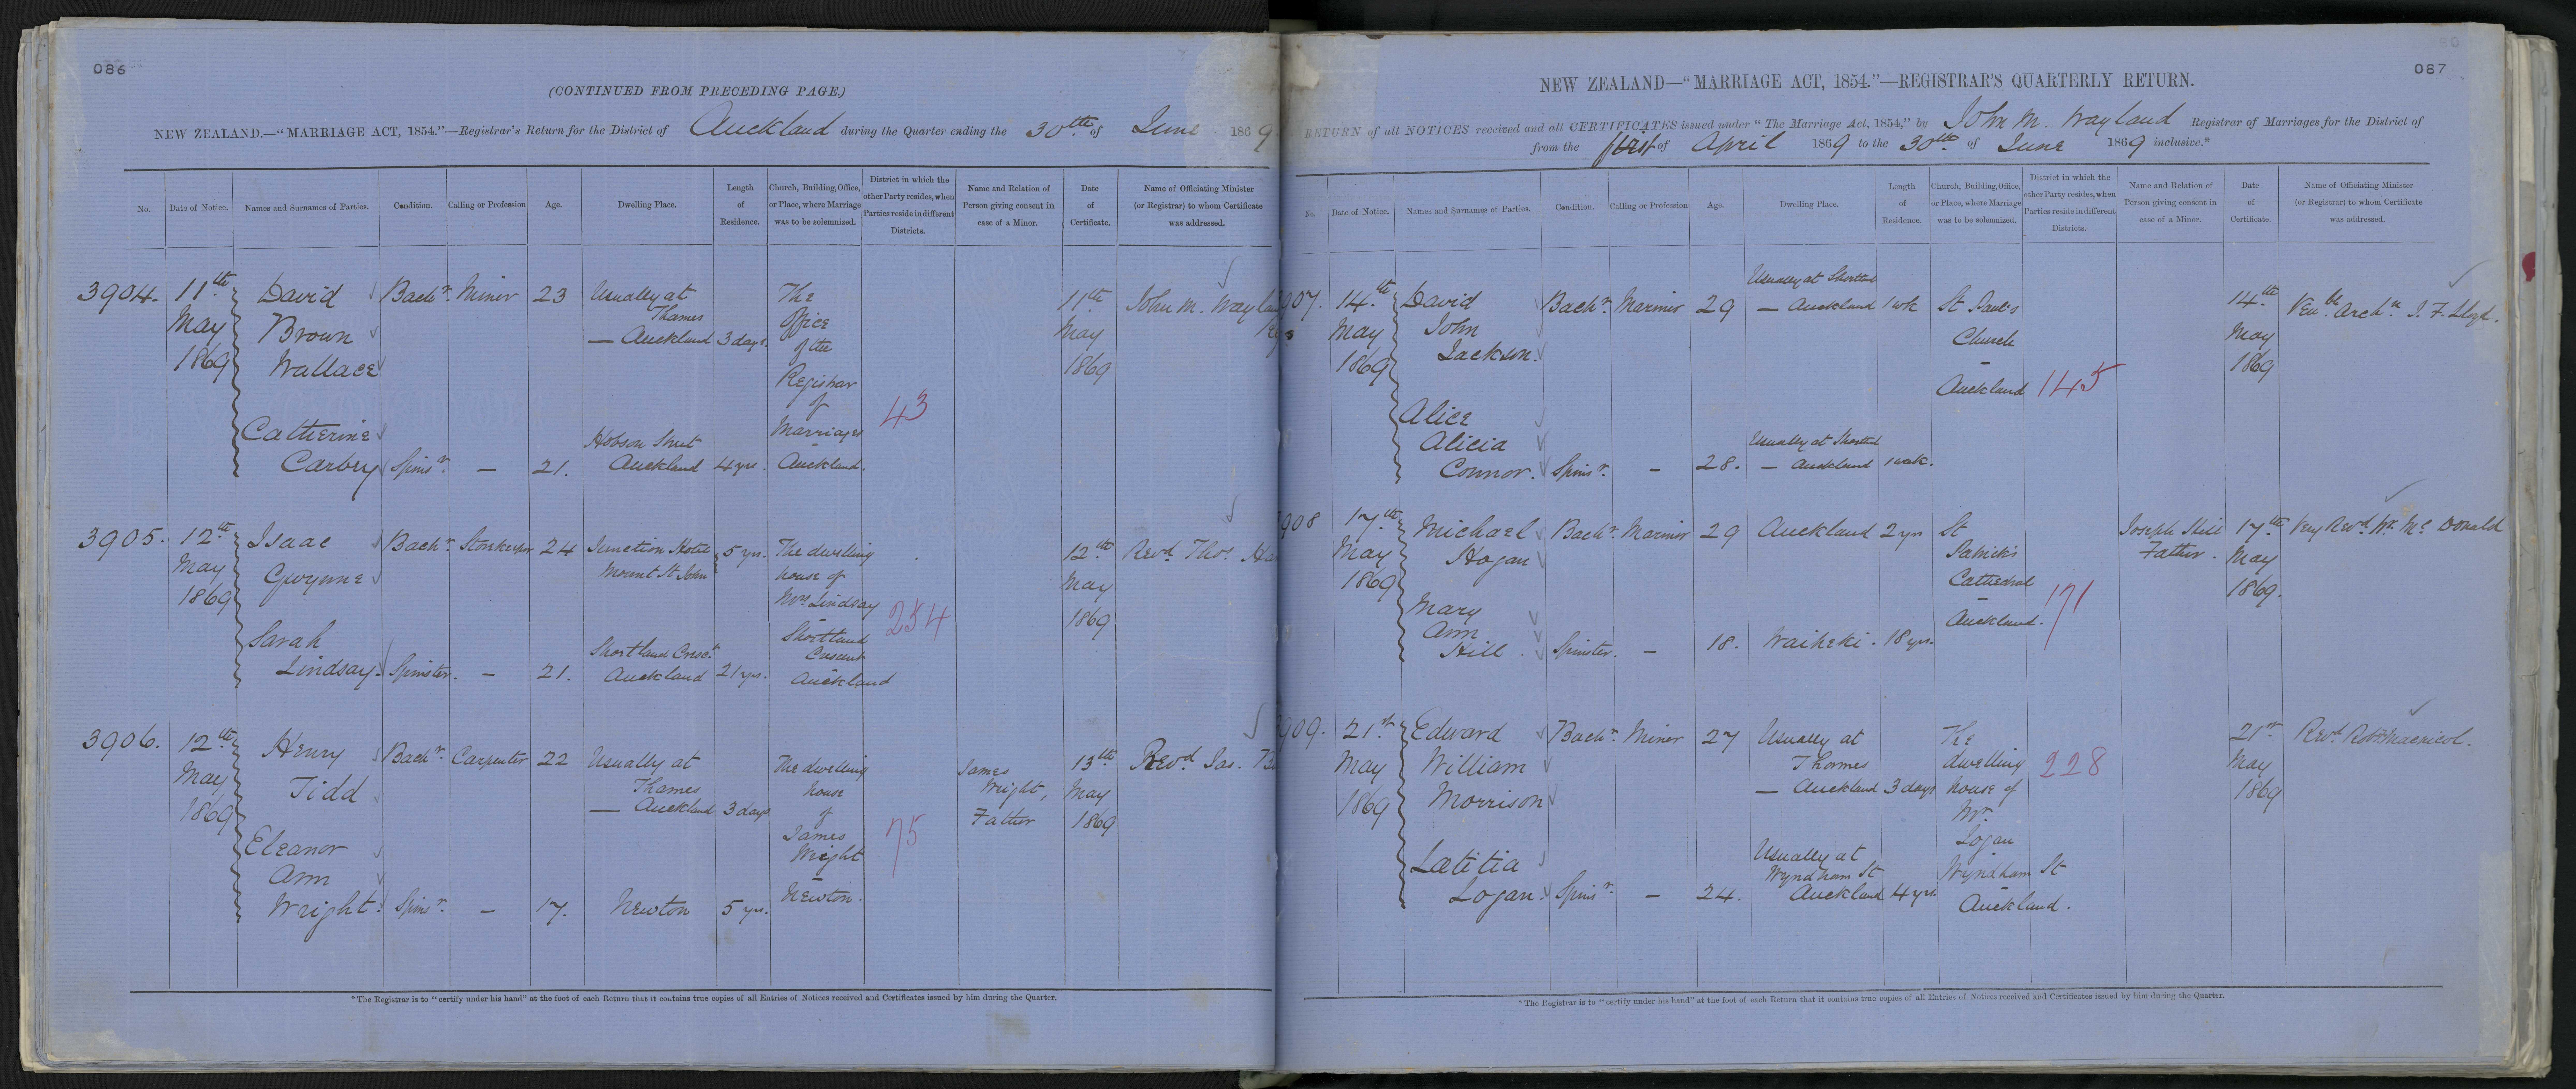 086
(CONTINUED FROM PRECEDING PAGE.)
NEW ZEALAND.—"MARRIAGE ACT, 1854."—Registrar's Return for the District of Auckland during the Quarter ending the 30th of June 1869
No. Date of Notice. Names and Surnames of Parties. Condition. Calling or Profession Age. Dwelling Place. Length of Residence. Church, Building, Office, or Place, where Marriage was to be solemnized. District in which the other Party resides, when Parties reside in different Districts. Name and Relation of Person giving consent in case of a Minor. Date of Certificate. Name of Officiating Minister (or Registrar) to whom Certificate was addressed.
3904. 11th May 1869
David Brown Wallace Bachr. Miner 23 Usually at Thames — Auckland 3 days. The Office of the Registrar of Marriages – Auckland. 43 11th May 1869 John M. Wayland
Catherine Carbery Spinsr. — 21. Hobson Street Auckland 4 yrs.
3905. 12th May 1869
Isaac Gwynne Bachr. Storekeeper 24 Junction Hotel Mount St John 5 yrs. The dwelling house of Mrs Lindsay – Shortland Crescent Auckland 254 12th May 1869 Revd. Thos.
Sarah Lindsay. Spinster. — 21. Shortland Cresct. Auckland 21 yrs.
3906. 12th May 1869
Henry Tidd Bachr. Carpenter 22 Usually at Thames — Auckland 3 days The dwelling house of James Wright – Newton. 75 James Wright, Father 13th May 1869 Revd. Jas.
Eleanor Ann Wright. Spinsr. — 17. Newton 5 yrs.
*The Registrar is to "certify under his hand" at the foot of each Return that it contains true copies of all Entries of Notices received and Certificates issued by him during the Quarter.
087
NEW ZEALAND—"MARRIAGE ACT, 1854."—REGISTRAR'S QUARTERLY RETURN.
RETURN of all NOTICES received and all CERTIFICATES issued under "The Marriage Act, 1854," by John M. Wayland Registrar of Marriages for the District of
from the first of April 1869 to the 30th of June 1869 inclusive.*
No. Date of Notice. Names and Surnames of Parties. Condition. Calling or Profession Age. Dwelling Place. Length of Residence. Church, Building, Office, or Place, where Marriage was to be solemnized. District in which the other Party resides, when Parties reside in different Districts. Name and Relation of Person giving consent in case of a Minor. Date of Certificate. Name of Officiating Minister (or Registrar) to whom Certificate was addressed.
907. 14th May 1869
David John Jackson. Bachr. Mariner 29 Usually at Shortland — Auckland 1 wk St Paul's Church – Auckland 145 14th May 1869 Venble. Archn. J. F. Lloyd.
Alice Alicia Connor. Spinsr. — 28. Usually at Shortland — Auckland 1 wk.
908 17th May 1869
Michael Hogan Bachr. Mariner 29 Auckland 2 yrs St Patrick's Cathedral – Auckland. 171 Joseph Hill Father. 17th May 1869. Very Revd. Wr. Mc Donald
Mary Ann Hill. Spinster. — 18. Waiheki. 18 yrs.
909. 21st May 1869
Edward William Morrison Bachr. Miner 27 Usually at Thames — Auckland 3 days The dwelling house of Mr. Logan Wyndham St – Auckland. 228 21st May 1869 Revd. Robt. Macnicol.
Lætitia Logan. Spinsr. — 24. Usually at Wyndham St Auckland 4 yrs.
*The Registrar is to "certify under his hand" at the foot of each Return that it contains true copies of all Entries of Notices received and Certificates issued by him during the Quarter.